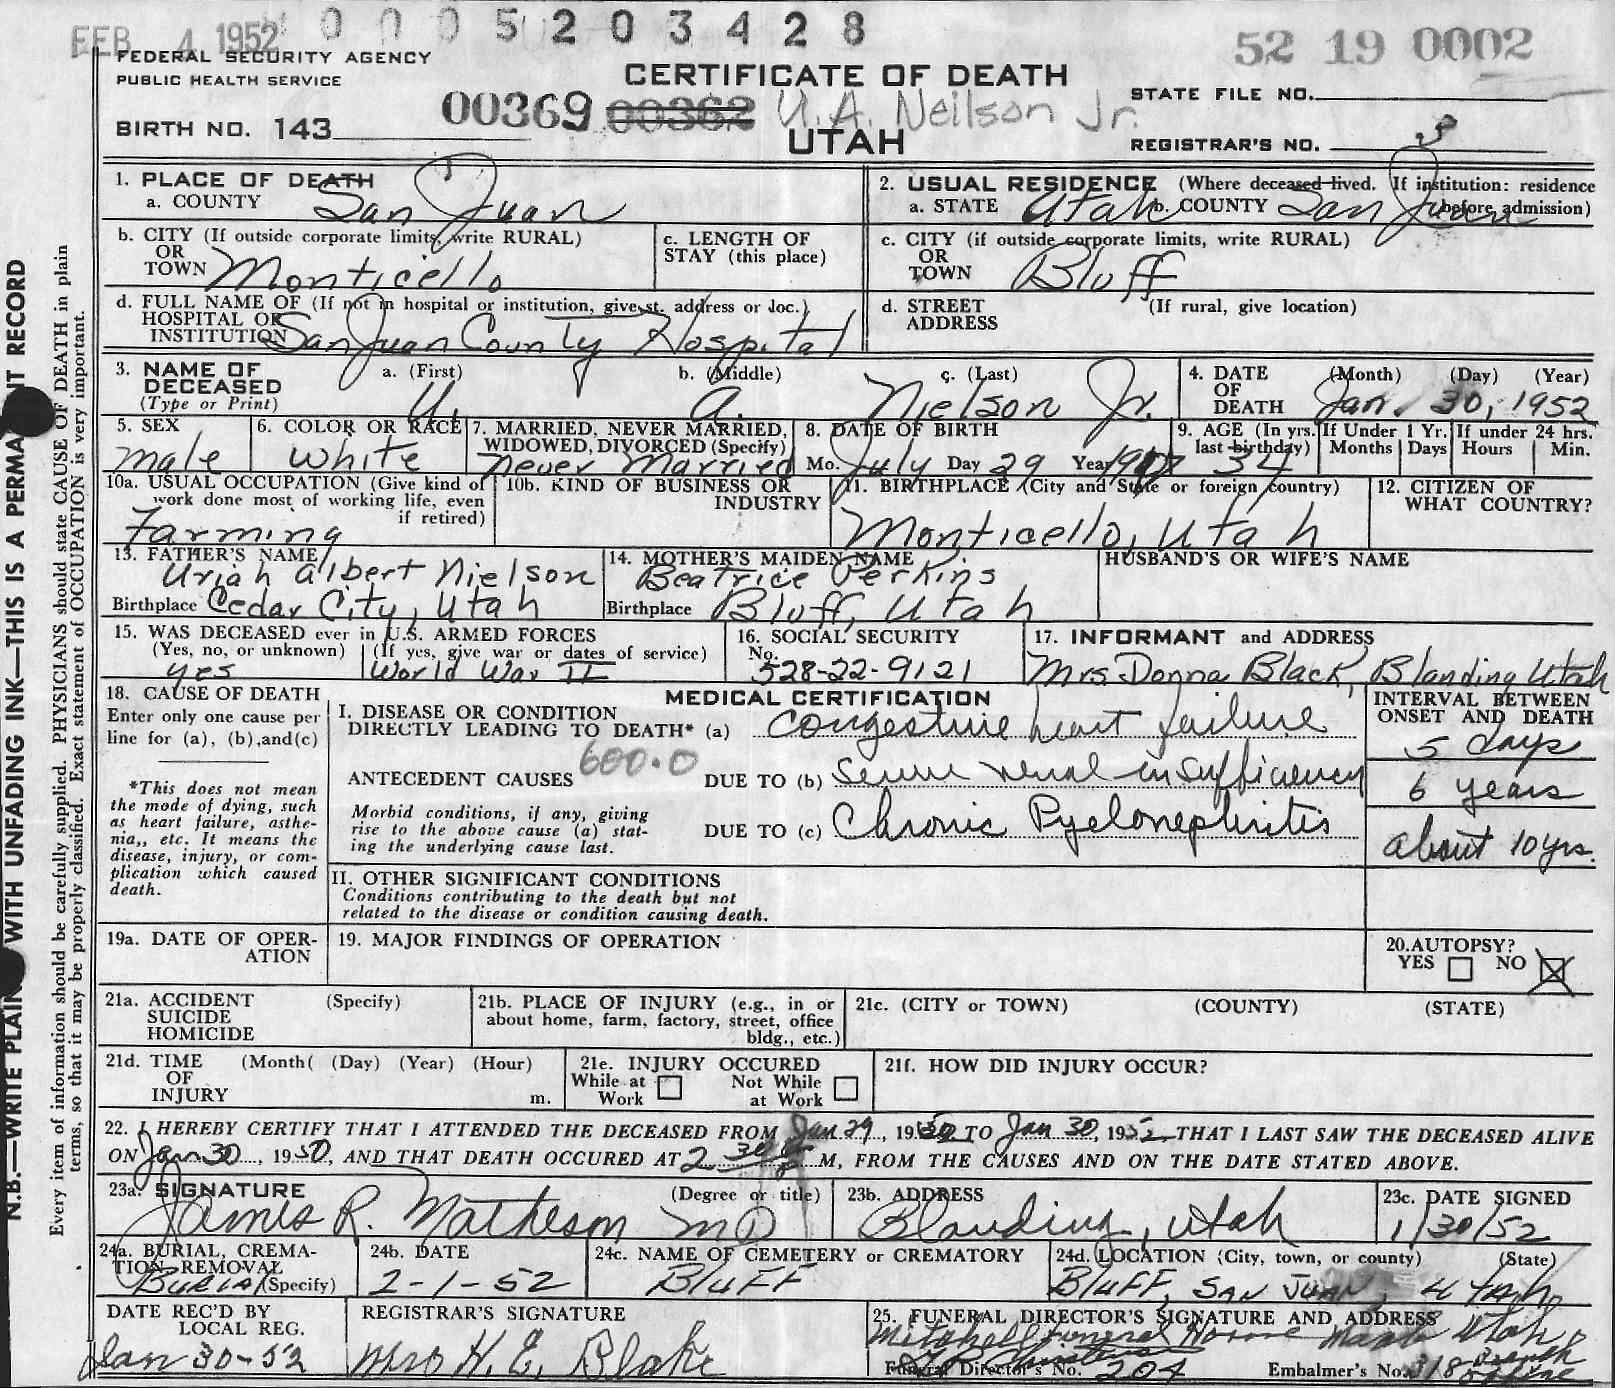 FEB 4 1952 0 0 0 5 2 0 3 4 2 8
52 19 0002
FEDERAL SECURITY AGENCY
PUBLIC HEALTH SERVICE
CERTIFICATE OF DEATH
STATE FILE NO.
00369 00362 U.A. Neilson Jr.
BIRTH NO. 143
UTAH
REGISTRAR'S NO.
N.B.—WRITE PLAIN WITH UNFADING INK—THIS IS A PERMA NT RECORD
Every item of information should be carefully supplied. PHYSICIANS should state CAUSE OF DEATH in plain
terms, so that it may be properly classified. Exact statement of OCCUPATION is very important.
1. PLACE OF DEATH
a. COUNTY San Juan
2. USUAL RESIDENCE (Where deceased lived. If institution: residence
before admission)
a. STATE Utah b. COUNTY San Juan
b. CITY (If outside corporate limits, write RURAL)
OR
TOWN Monticello
c. LENGTH OF
STAY (this place)
c. CITY (if outside corporate limits, write RURAL)
OR
TOWN Bluff
d. FULL NAME OF (If not in hospital or institution, give st. address or loc.)
HOSPITAL OR
INSTITUTION San Juan County Hospital
d. STREET
ADDRESS
(If rural, give location)
3. NAME OF
DECEASED
(Type or Print)
a. (First) b. (Middle) c. (Last)
U. A. Nielson Jr.
4. DATE
OF
DEATH
(Month) (Day) (Year)
Jan. 30, 1952
5. SEX
male
6. COLOR OR RACE
white
7. MARRIED, NEVER MARRIED,
WIDOWED, DIVORCED (Specify)
never married
8. DATE OF BIRTH
Mo. July Day 29 Year 1917
9. AGE (In yrs.
last birthday)
34
If Under 1 Yr.
Months Days
If under 24 hrs.
Hours Min.
10a. USUAL OCCUPATION (Give kind of
work done most of working life, even
if retired)
Farming
10b. KIND OF BUSINESS OR
INDUSTRY
11. BIRTHPLACE (City and State or foreign country)
Monticello, Utah
12. CITIZEN OF
WHAT COUNTRY?
13. FATHER'S NAME
Uriah Albert Nielson
Birthplace Cedar City, Utah
14. MOTHER'S MAIDEN NAME
Beatrice Perkins
Birthplace Bluff, Utah
HUSBAND'S OR WIFE'S NAME
15. WAS DECEASED ever in U.S. ARMED FORCES
(Yes, no, or unknown) (If yes, give war or dates of service)
yes World War II
16. SOCIAL SECURITY
No.
528-22-9121
17. INFORMANT and ADDRESS
Mrs Donna Black, Blanding Utah
18. CAUSE OF DEATH
Enter only one cause per
line for (a), (b), and (c)
*This does not mean
the mode of dying, such
as heart failure, asthe-
nia,, etc. It means the
disease, injury, or com-
plication which caused
death.
MEDICAL CERTIFICATION
I. DISEASE OR CONDITION
DIRECTLY LEADING TO DEATH* (a) Congestive heart failure
600.0
ANTECEDENT CAUSES DUE TO (b) Severe renal insufficiency
Morbid conditions, if any, giving
rise to the above cause (a) stat-
ing the underlying cause last.
DUE TO (c) Chronic Pyelonephritis
INTERVAL BETWEEN
ONSET AND DEATH
5 days
6 years
about 10 yrs.
II. OTHER SIGNIFICANT CONDITIONS
Conditions contributing to the death but not
related to the disease or condition causing death.
19a. DATE OF OPER-
ATION
19. MAJOR FINDINGS OF OPERATION
20. AUTOPSY?
YES NO
21a. ACCIDENT (Specify)
SUICIDE
HOMICIDE
21b. PLACE OF INJURY (e.g., in or
about home, farm, factory, street, office
bldg., etc.)
21c. (CITY or TOWN) (COUNTY) (STATE)
21d. TIME (Month( (Day) (Year) (Hour)
OF
INJURY m.
21e. INJURY OCCURED
While at Not While
Work at Work
21f. HOW DID INJURY OCCUR?
22. I HEREBY CERTIFY THAT I ATTENDED THE DECEASED FROM Jan 29, 1950 TO Jan 30, 1952 THAT I LAST SAW THE DECEASED ALIVE
ON Jan 30, 1950, AND THAT DEATH OCCURED AT 2 30 M, FROM THE CAUSES AND ON THE DATE STATED ABOVE.
23a. SIGNATURE (Degree or title)
James R. Matheson MD
23b. ADDRESS
Blanding, Utah
23c. DATE SIGNED
1/30/52
24a. BURIAL, CREMA-
TION, REMOVAL
Burial (Specify)
24b. DATE
2-1-52
24c. NAME OF CEMETERY or CREMATORY
Bluff
24d. LOCATION (City, town, or county) (State)
Bluff, San Juan, Utah
DATE REC'D BY
LOCAL REG.
Jan 30-52
REGISTRAR'S SIGNATURE
Mrs H. E. Blake
25. FUNERAL DIRECTOR'S SIGNATURE AND ADDRESS
Mitchell Funeral Home Utah
Funeral Director's No. 204 Embalmer's No. 318